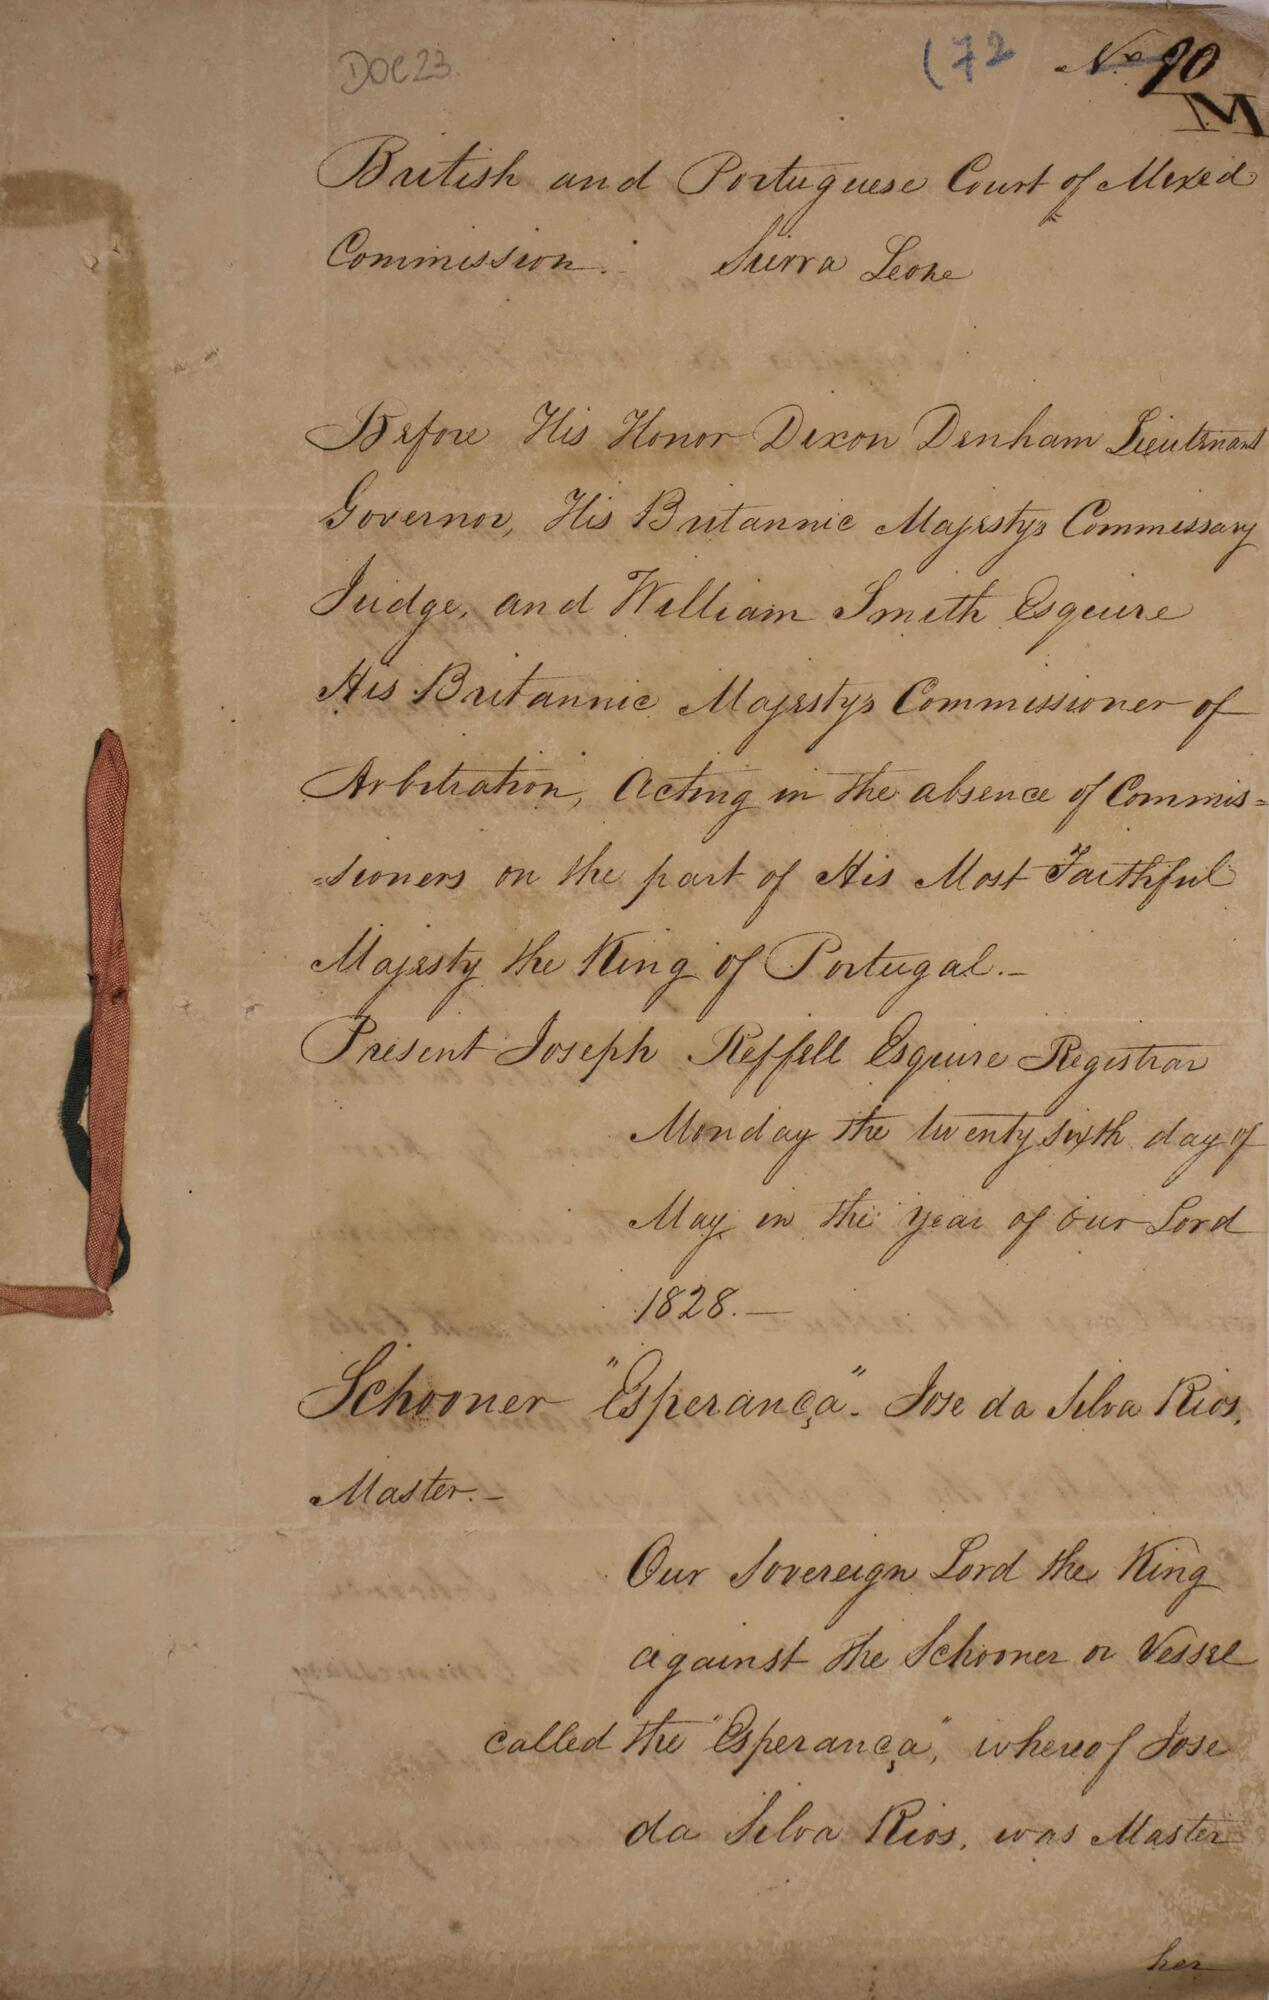 DOC 23. (72 No 90
M
British and Portuguese Court of Mixed
Commission. Sierra Leone
Before His Honor Dixon Denham Lieutenant
Governor, His Britannic Majestys Commissary
Judge, and William Smith Esquire
His Britannic Majestys Commissioner of
Arbitration, Acting in the absence of Commis=
=sioners on the part of His Most Faithful
Majesty the King of Portugal.—
Present Joseph Reffell Esquire Registrar
Monday the twenty sixth day of
May in the year of our Lord
1828.—
Schooner "Esperança". Jose da Silva Rios,
Master.—
Our Sovereign Lord the King
against the Schooner or Vessel
called the "Esperança", whereof Jose
da Silva Rios, was Master
her